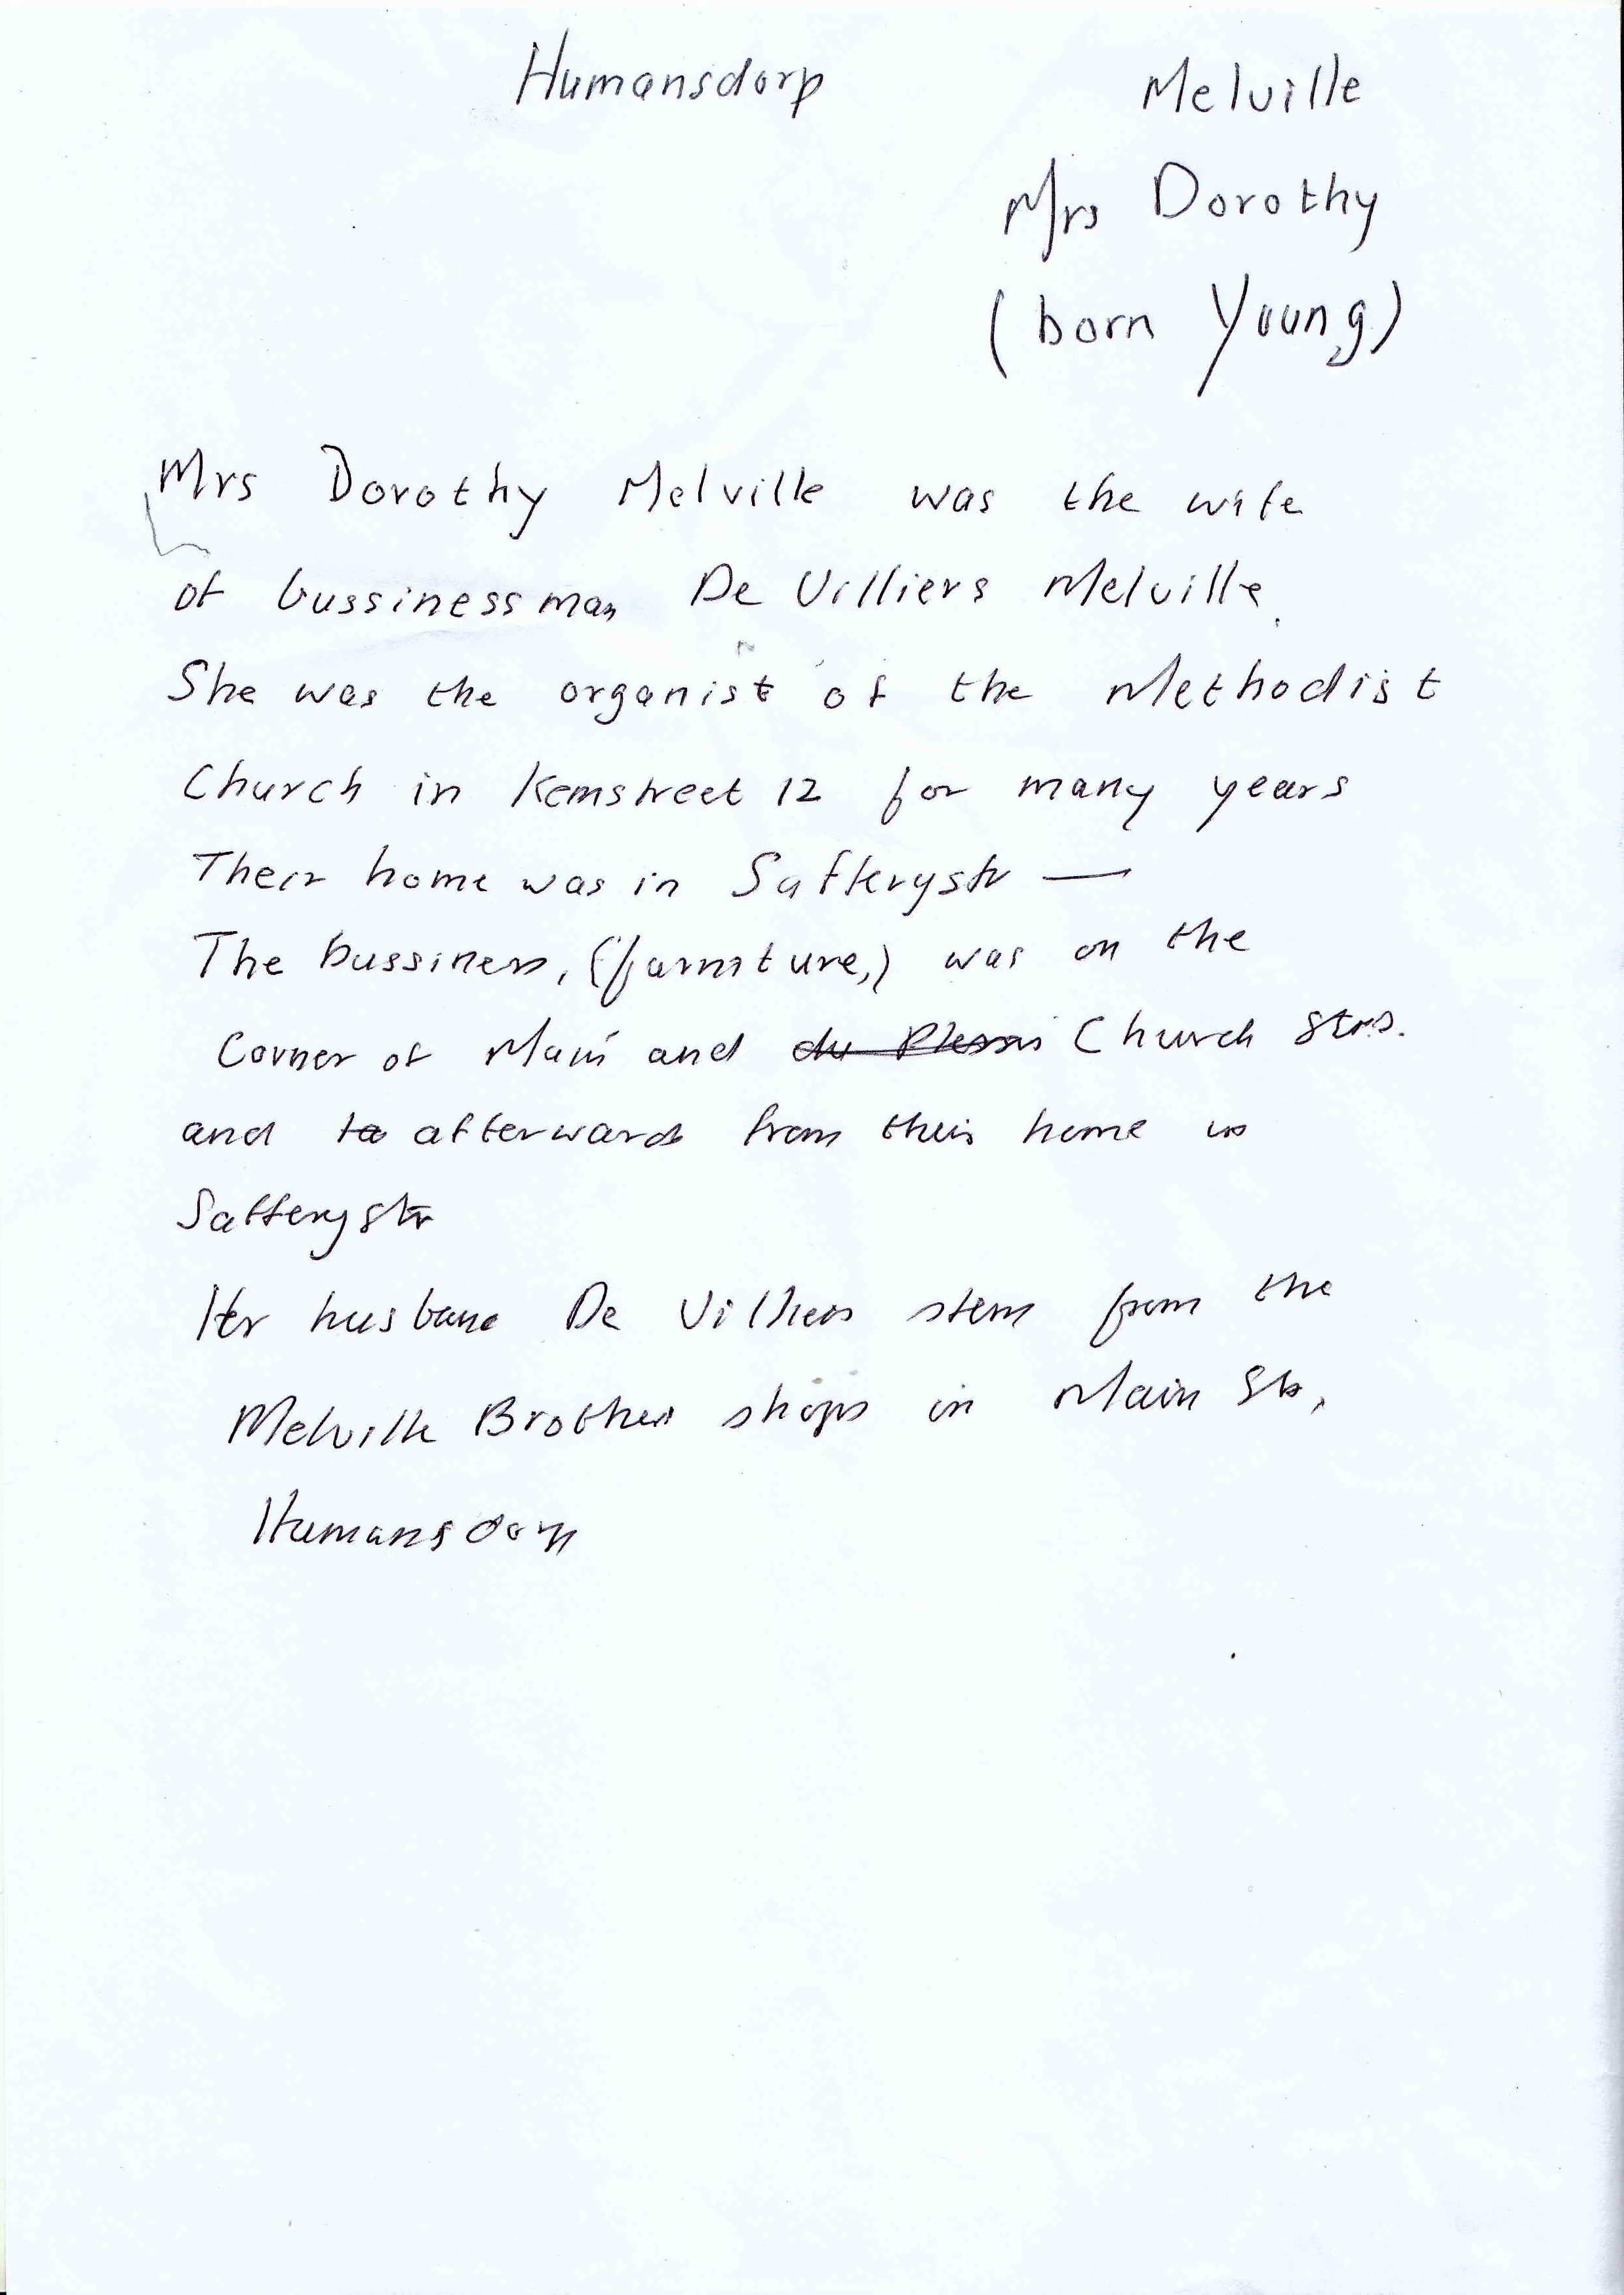 Humansdorp Melville
Mrs Dorothy
(born Young)
Mrs Dorothy Melville was the wife
of bussinessman De Villiers Melville.
She was the organist of the Methodist
Church in Kemstreet 12 for many years
Their home was in Saffterystr —
The bussiness, (furniture,) was on the
Corner of Main and du Plessis Church Strs.
and to afterwards from their home in
Safferystr
Her husband De Villiers stem from the
Melville Brothers shops in Main Str,
Humansdorp